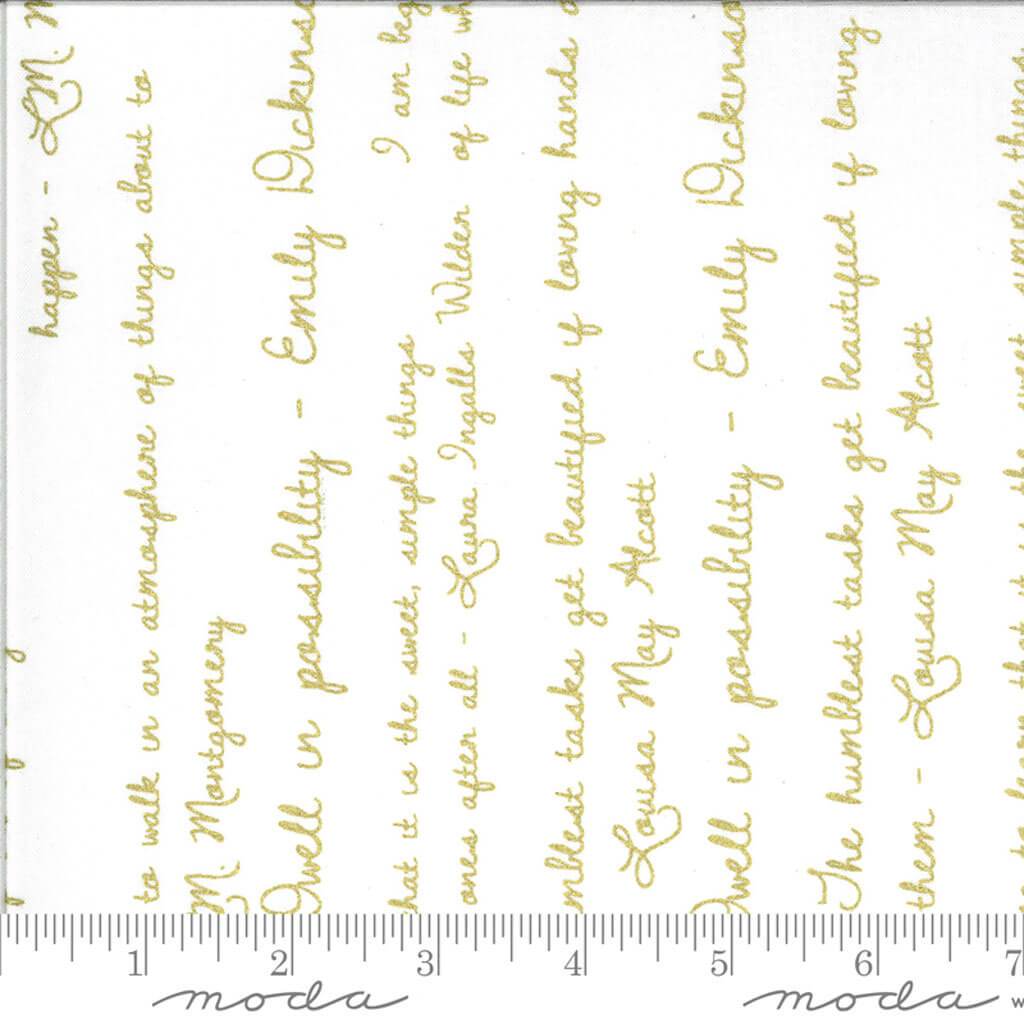 happen - L.M. M
to walk in an atmosphere of things about to
M. Montgomery
Dwell in possibility - Emily Dickinso
I am beg
hat it is the sweet, simple things
of life wh
ones after all - Laura Ingalls Wilder
mblest tasks get beautified if loving hands
Louisa May Alcott
Dwell in possibility - Emily Dickinso
The humblest tasks get beautified if loving
them - Louisa May Alcott
that it is the sweet, simple things
1 2 3 4 5 6 7
moda moda w